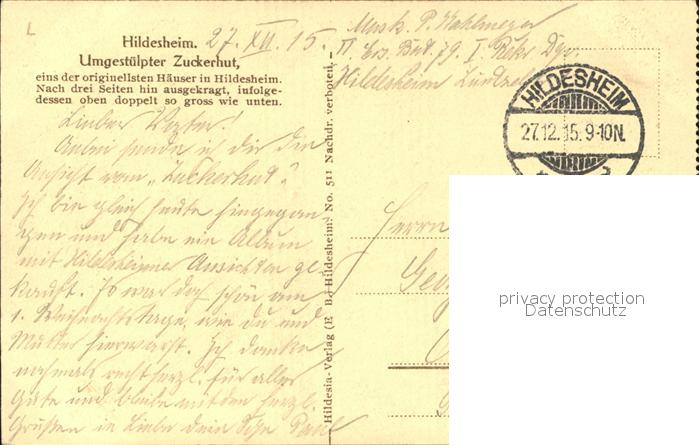 Hildesheim. 27. XII. 15.
Umgestülpter Zuckerhut,
eins der originellsten Häuser in Hildesheim.
Nach drei Seiten hin ausgekragt, infolge-
dessen oben doppelt so gross wie unten.
Musk. P.
II. Ers. Batl. 79. I. Rekr. Dep.
Hildesheim
HILDESHEIM
27.12.15.9-10N.
Lieber Vater!
Anbei sende ich dir die
Ansicht vom „Zuckerhut“.
Ich bin gleich heute hingegan-
gen und habe ein Album
mit Hildesheimer Ansichten ge-
kauft. Es war doch schön am
1. Weihnachtstage, wie du und
Mutter hier warst. Ich danke
nochmals recht herzl. für alles
Gute und bleibe mit den herzl.
Grüßen in Liebe dein Sohn Paul
Hildesia-Verlag (E B.) Hildesheim. No. 511 Nachdr. verboten.
Herrn
privacy protection
Datenschutz